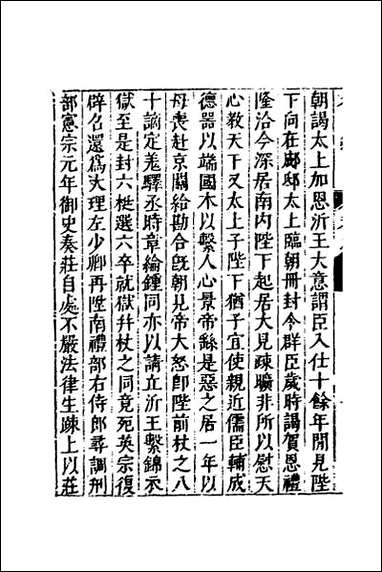 朝謁太上加恩沂王大意謂臣入仕十餘年聞見陛
下向在郕邸太上臨朝冊封今群臣歲時謁賀恩禮
隆洽今深居南內陛下起居大見疎曠非所以慰天
心教天下又太上子陛下猶子宜使親近儒臣輔成
德器以端國本以繫人心景帝銜是惡之居一年以
母喪赴京關給勘合旣朝見帝大怒卽陛前杖之八
十謫定羗驛丞時章綸鍾同亦以請立沂王繫錦衣
獄至是封六梃選六卒就獄幷杖之同竟死英宗復
辟召還爲大理左少卿再陞南禮部右侍郎尋調刑
部憲宗元年御史奏莊自處不嚴法律生疎上以莊